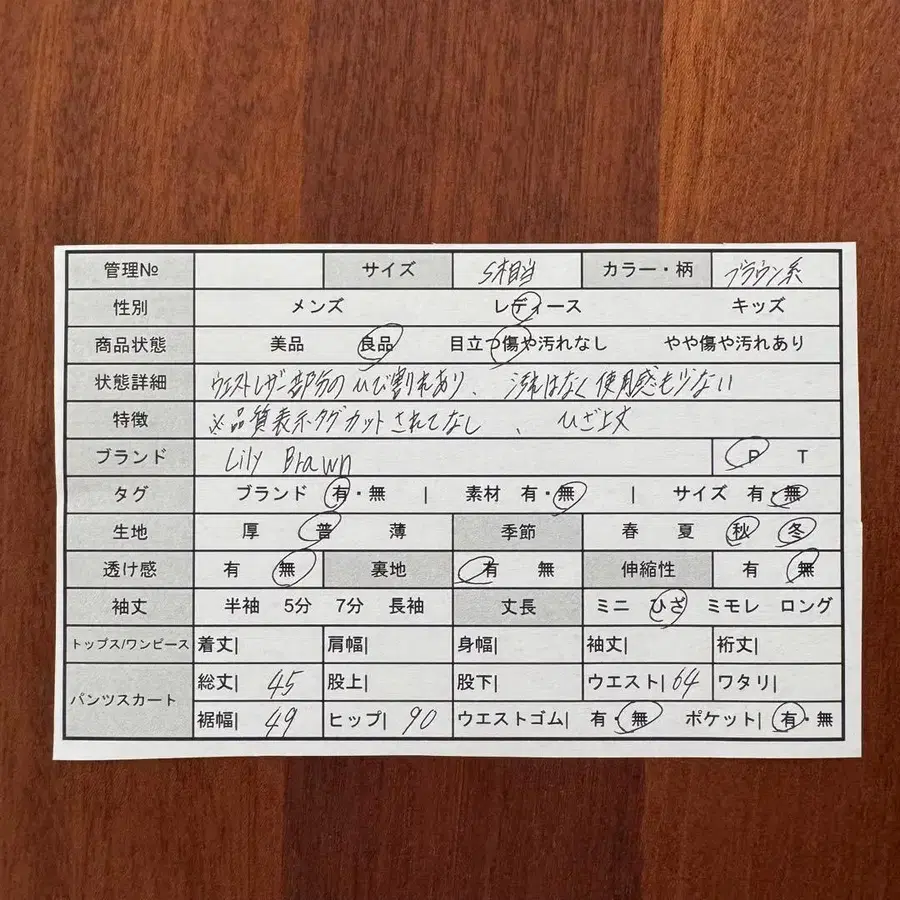 管理№ サイズ S相当 カラー・柄 ブラウン系
性別 メンズ レディース キッズ
商品状態 美品 良品 目立つ傷や汚れなし やや傷や汚れあり
状態詳細 ウエストレザー部分のひび割れあり、汚れはなく使用感も少ない
特徴 ※品質表示タグカットされてなし 、 ひざ上丈
ブランド Lily Brawn P T
タグ ブランド 有・無 | 素材 有・無 | サイズ 有・無
生地 厚 普 薄 季節 春 夏 秋 冬
透け感 有 無 裏地 有 無 伸縮性 有 無
袖丈 半袖 5分 7分 長袖 丈長 ミニ ひざ ミモレ ロング
トップス/ワンピース 着丈| 肩幅| 身幅| 袖丈| 裄丈|
パンツスカート 総丈| 45 股上| 股下| ウエスト| 64 ワタリ|
裾幅| 49 ヒップ| 90 ウエストゴム| 有・無 ポケット| 有・無